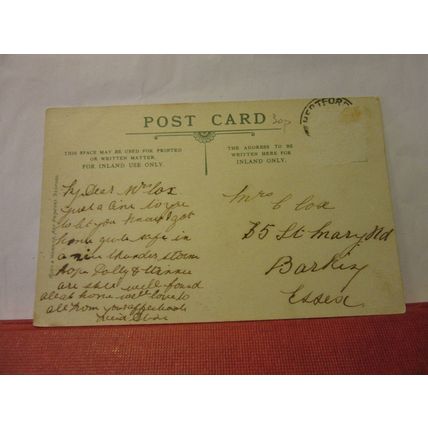 POST CARD
30p
HERTFORD
THIS SPACE MAY BE USED FOR PRINTED
OR WRITTEN MATTER.
FOR INLAND USE ONLY.
THE ADDRESS TO BE
WRITTEN HERE FOR
INLAND ONLY.
My Dear Mrs Cox
Just a line to
to let you know I got
home quite safe in
a nice thunder storm
hope Dolly &
are still well found
all at home well love to
all from your affectionate
friend
Mrs C Cox
35 St Mary Rd
Barking
Essex